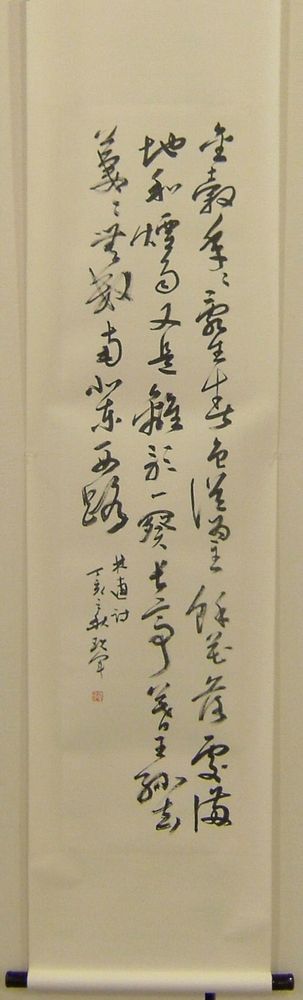 金穀年〻亂生春色誰為主餘花落處滿
地和煙雨又是離歌一闋長亭暮王孫去
萋〻無數南北東西路
林逋詩
丁亥之秋